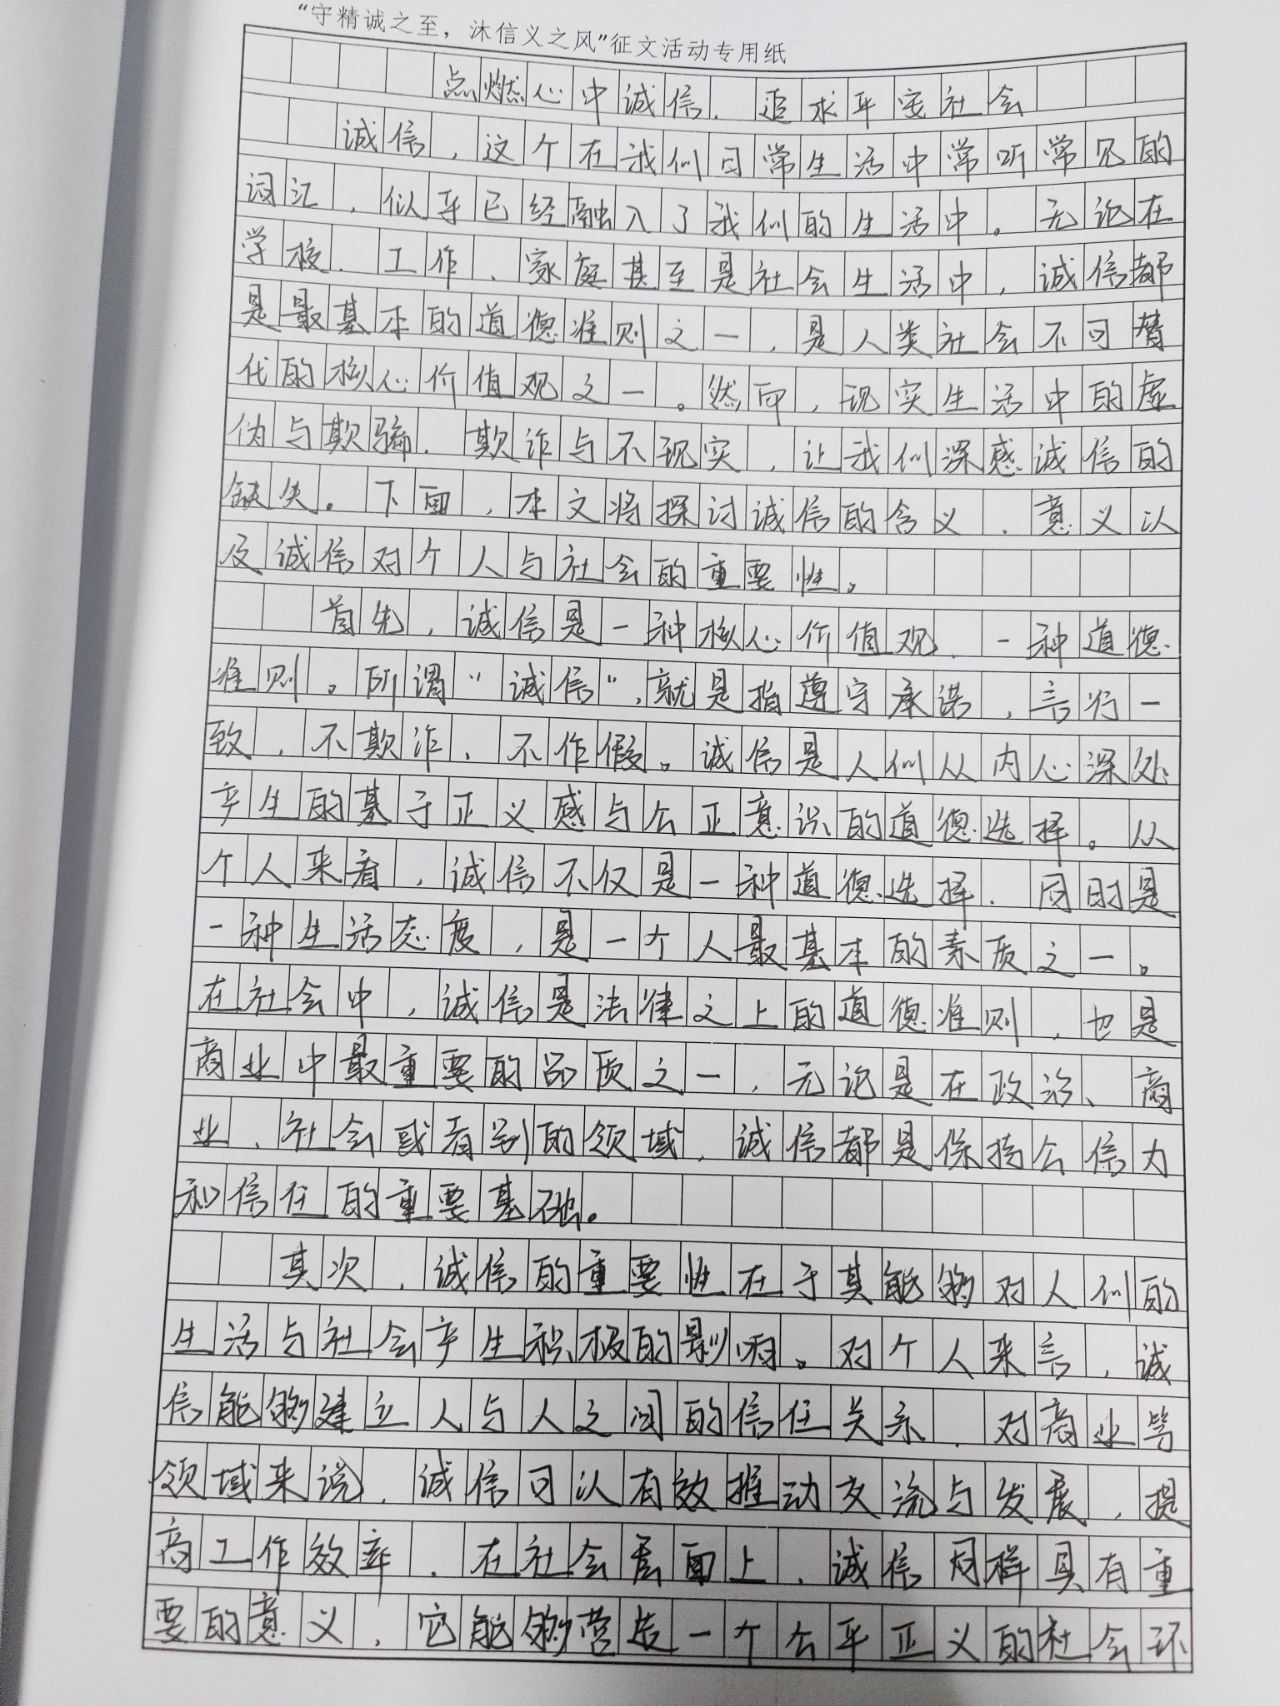 “守精诚之至，沐信义之风”征文活动专用纸
点燃心中诚信，追求平安社会
诚信，这个在我们日常生活中常听常见的
词汇，似乎已经融入了我们的生活中。无论在
学校、工作、家庭甚至是社会生活中，诚信都
是最基本的道德准则之一，是人类社会不可替
代的核心价值观之一。然而，现实生活中的虚
伪与欺骗、欺诈与不现实，让我们深感诚信的
缺失。下面，本文将探讨诚信的含义、意义以
及诚信对个人与社会的重要性。
首先，诚信是一种核心价值观、一种道德
准则。所谓“诚信”，就是指遵守承诺，言行一
致，不欺诈，不作假。诚信是人们从内心深处
产生的基于正义感与公正意识的道德选择。从
个人来看，诚信不仅是一种道德选择，同时是
一种生活态度，是一个人最基本的素质之一。
在社会中，诚信是法律之上的道德准则，也是
商业中最重要的品质之一，无论是在政治、商
业、社会或者别的领域，诚信都是保持公信力
和信任的重要基础。
其次，诚信的重要性在于其能够对人们的
生活与社会产生积极的影响。对个人来言，诚
信能够建立人与人之间的信任关系，对商业等
领域来说，诚信可以有效推动交流与发展，提
高工作效率，在社会层面上，诚信同样具有重
要的意义，它能够营造一个公平正义的社会环